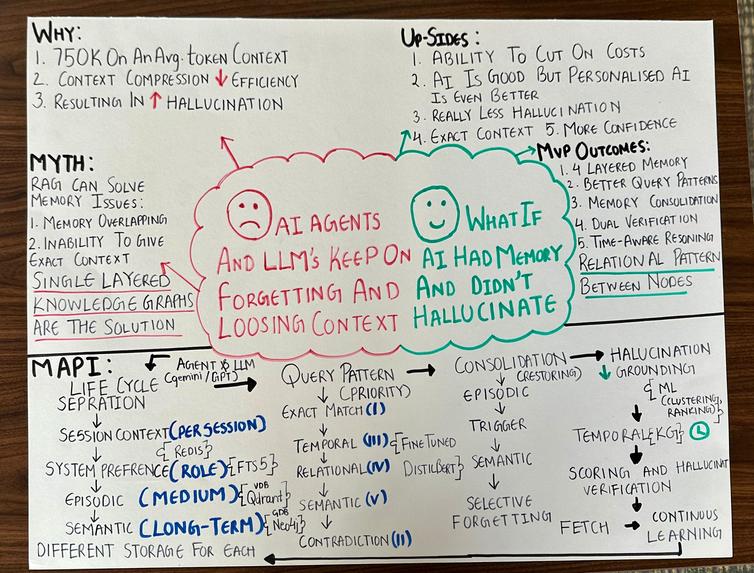 WHY:
1. 750K On An Avg. token Context
2. Context Compression ↓ Efficiency
3. Resulting In ↑ Hallucination
Up-Sides:
1. Ability To Cut On Costs
2. AI Is Good But Personalised AI
Is Even Better
3. Really Less Hallucination
4. Exact Context 5. More Confidence
MYTH:
RAG Can Solve
Memory Issues:
1. Memory Overlapping
2. Inability To Give
Exact Context
Single Layered
Knowledge Graphs
Are The Solution
AI Agents
And LLM's Keep On
Forgetting And
Loosing Context
What If
AI Had Memory
And Didn't
Hallucinate
MVP Outcomes:
1. 4 Layered Memory
2. Better Query Patterns
3. Memory Consolidation
4. Dual Verification
5. Time-Aware Resoning
Relational Pattern
Between Nodes
MAPI:
Agent LLM
(gemini/GPT)
Life Cycle
Sepration
Session Context (Per Session)
{Redis}
System Prefrence (Role) {FTS5}
Episodic (Medium) {VDB Qdrant}
Semantic (Long-Term) {GDB Neo4j}
Different Storage For Each
Query Pattern
(Priority)
Exact Match (I)
Temporal (III) {FineTuned
Relational (IV) Distilbert}
Semantic (V)
Contradiction (II)
Consolidation
(Restoring)
Episodic
Trigger
Semantic
Selective
Forgetting
Halucination
↓ Grounding
{ML
(Clustering,
Ranking)}
Temporal {KG}
Scoring And Hallucinat
Verification
Fetch → Continous
Learning